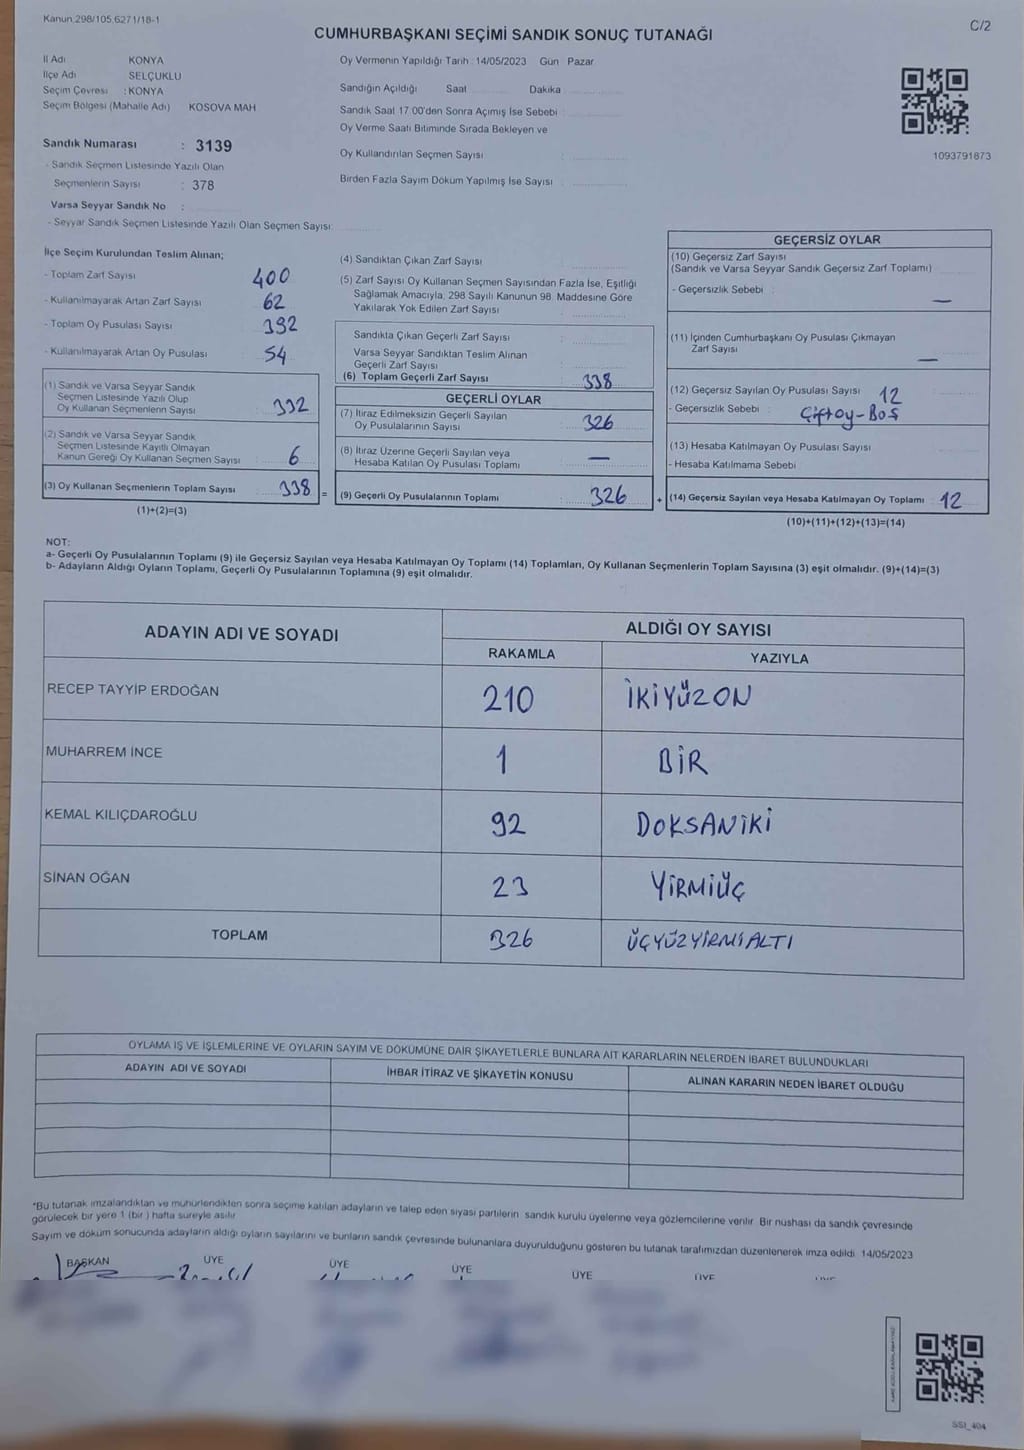 Kanun.298/105,6271/18-1
C/2
CUMHURBAŞKANI SEÇİMİ SANDIK SONUÇ TUTANAĞI
İl Adı KONYA
İlçe Adı SELÇUKLU
Seçim Çevresi : KONYA
Seçim Bölgesi (Mahalle Adı) KOSOVA MAH
Sandık Numarası : 3139
- Sandık Seçmen Listesinde Yazılı Olan
Seçmenlerin Sayısı : 378
Varsa Seyyar Sandık No :
- Seyyar Sandık Seçmen Listesinde Yazılı Olan Seçmen Sayısı:
Oy Vermenin Yapıldığı Tarih : 14/05/2023 Gün Pazar
Sandığın Açıldığı Saat Dakika
Sandık Saat 17:00'den Sonra Açımış İse Sebebi :
Oy Verme Saati Bitiminde Sırada Bekleyen ve
Oy Kullandırılan Seçmen Sayısı :
Birden Fazla Sayım Döküm Yapılmış İse Sayısı :
1093791673
İlçe Seçim Kurulundan Teslim Alınan;
- Toplam Zarf Sayısı 400
- Kullanılmayarak Artan Zarf Sayısı 62
- Toplam Oy Pusulası Sayısı 392
- Kullanılmayarak Artan Oy Pusulası 54
(1) Sandık ve Varsa Seyyar Sandık
Seçmen Listesinde Yazılı Olup
Oy Kullanan Seçmenlerin Sayısı 332
(2) Sandık ve Varsa Seyyar Sandık
Seçmen Listesinde Kayıtlı Olmayan
Kanun Gereği Oy Kullanan Seçmen Sayısı 6
(3) Oy Kullanan Seçmenlerin Toplam Sayısı 338 =
(1)+(2)=(3)
(4) Sandıktan Çıkan Zarf Sayısı
(5) Zarf Sayısı Oy Kullanan Seçmen Sayısından Fazla İse, Eşitliği
Sağlamak Amacıyla, 298 Sayılı Kanunun 98. Maddesine Göre
Yakılarak Yok Edilen Zarf Sayısı :
Sandıkta Çıkan Geçerli Zarf Sayısı
Varsa Seyyar Sandıktan Teslim Alınan
Geçerli Zarf Sayısı
(6) Toplam Geçerli Zarf Sayısı 338
GEÇERLİ OYLAR
(7) İtiraz Edilmeksizin Geçerli Sayılan
Oy Pusulalarının Sayısı 326
(8) İtiraz Üzerine Geçerli Sayılan veya
Hesaba Katılan Oy Pusulası Toplamı —
(9) Geçerli Oy Pusulalarının Toplamı 326 +
GEÇERSİZ OYLAR
(10) Geçersiz Zarf Sayısı
(Sandık ve Varsa Seyyar Sandık Geçersiz Zarf Toplamı)
- Geçersizlik Sebebi : —
(11) İçinden Cumhurbaşkanı Oy Pusulası Çıkmayan
Zarf Sayısı —
(12) Geçersiz Sayılan Oy Pusulası Sayısı 12
- Geçersizlik Sebebi : Çiftoy-Boş
(13) Hesaba Katılmayan Oy Pusulası Sayısı
- Hesaba Katılmama Sebebi
(14) Geçersiz Sayılan veya Hesaba Katılmayan Oy Toplamı 12
(10)+(11)+(12)+(13)=(14)
NOT:
a- Geçerli Oy Pusulalarının Toplamı (9) ile Geçersiz Sayılan veya Hesaba Katılmayan Oy Toplamı (14) Toplamları, Oy Kullanan Seçmenlerin Toplam Sayısına (3) eşit olmalıdır. (9)+(14)=(3)
b- Adayların Aldığı Oyların Toplamı, Geçerli Oy Pusulalarının Toplamına (9) eşit olmalıdır.
ADAYIN ADI VE SOYADI
ALDIĞI OY SAYISI
RAKAMLA YAZIYLA
RECEP TAYYİP ERDOĞAN 210 İKİYÜZON
MUHARREM İNCE 1 BİR
KEMAL KILIÇDAROĞLU 92 DOKSANİKİ
SİNAN OĞAN 23 YİRMİÜÇ
TOPLAM 326 ÜÇYÜZYİRMİALTI
OYLAMA İŞ VE İŞLEMLERİNE VE OYLARIN SAYIM VE DÖKÜMÜNE DAİR ŞİKAYETLERLE BUNLARA AİT KARARLARIN NELERDEN İBARET BULUNDUKLARI
ADAYIN ADI VE SOYADI İHBAR İTİRAZ VE ŞİKAYETİN KONUSU ALINAN KARARIN NEDEN İBARET OLDUĞU
*Bu tutanak imzalandıktan ve mühürlendikten sonra seçime katılan adayların ve talep eden siyasi partilerin sandık kurulu üyelerine veya gözlemcilerine verilir. Bir nüshası da sandık çevresinde
görülecek bir yere 1 (bir ) hafta süreyle asılır.
Sayım ve döküm sonucunda adayların aldığı oyların sayılarını ve bunların sandık çevresinde bulunanlara duyurulduğunu gösteren bu tutanak tarafımızdan düzenlenerek imza edildi. 14/05/2023
BAŞKAN ÜYE ÜYE ÜYE ÜYE ÜYE ÜYE
SSI_404